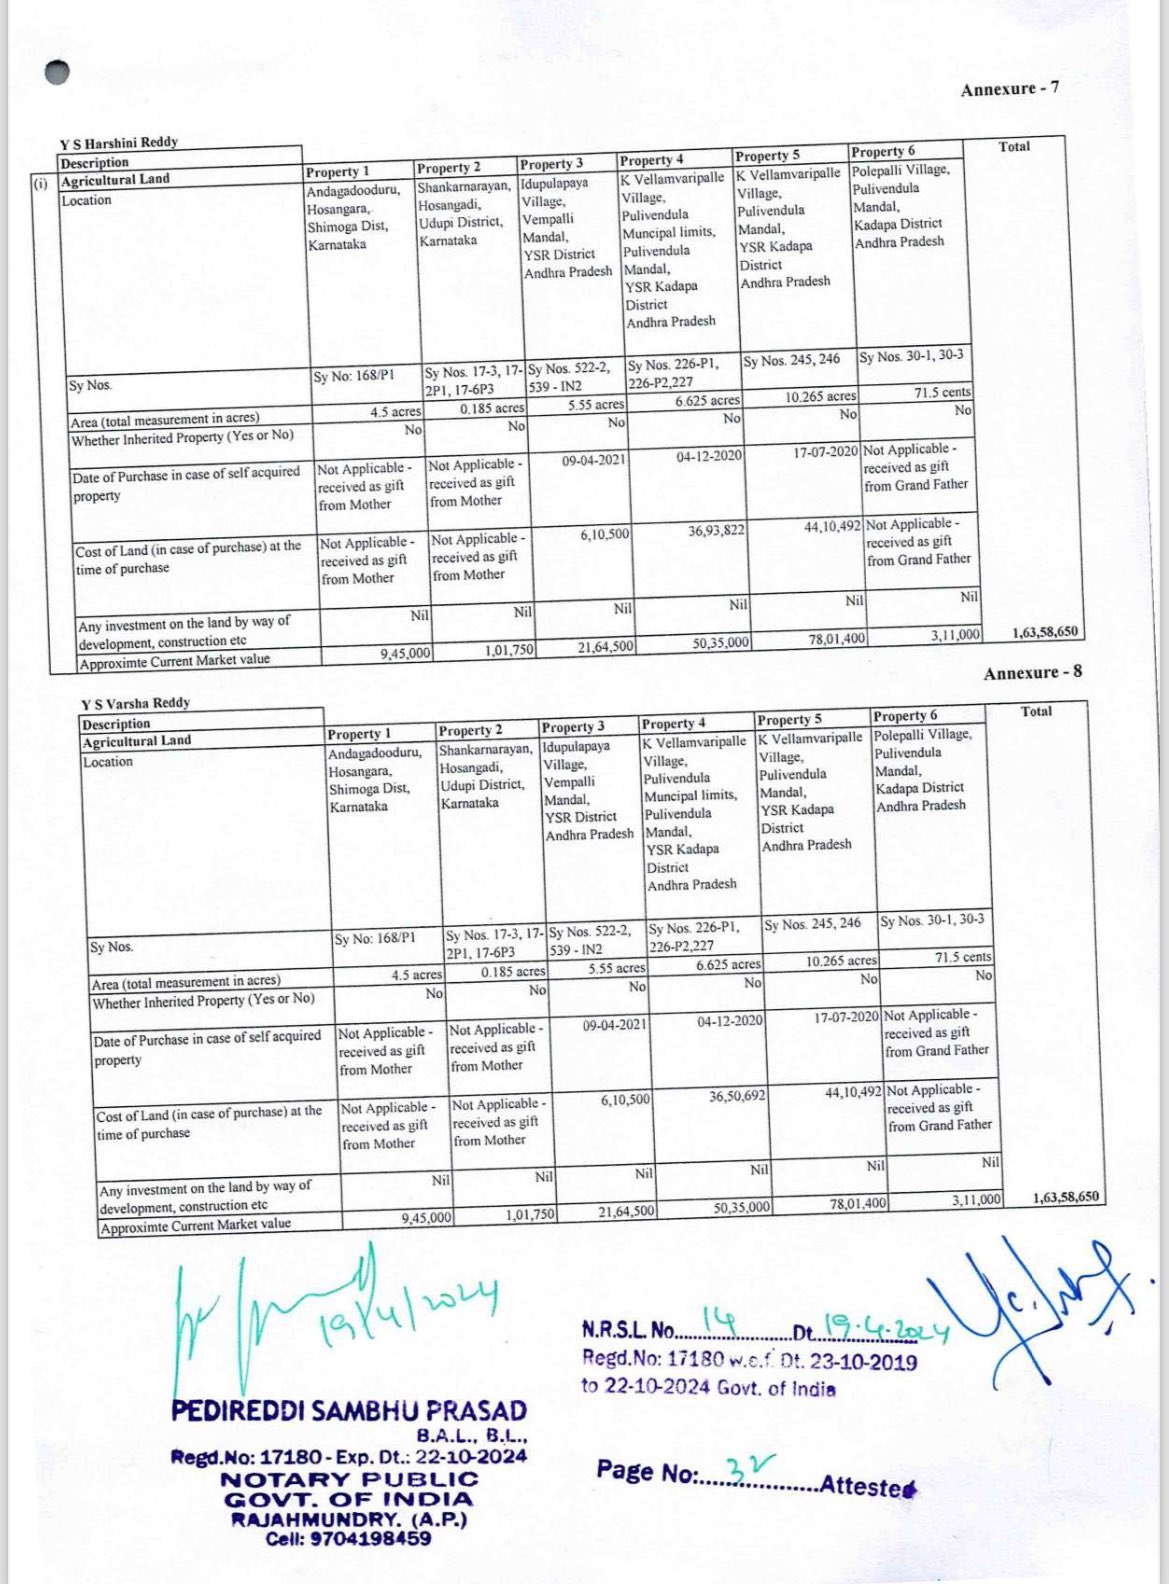 Annexure - 7
Y S Harshini Reddy
Description Property 1 Property 2 Property 3 Property 4 Property 5 Property 6 Total
(i) Agricultural Land
Location Andagadooduru, Hosangara, Shimoga Dist, Karnataka Shankarnarayan, Hosangadi, Udupi District, Karnataka Idupulapaya Village, Vempalli Mandal, YSR District Andhra Pradesh K Vellamvaripalle Village, Pulivendula Muncipal limits, Pulivendula Mandal, YSR Kadapa District Andhra Pradesh K Vellamvaripalle Village, Pulivendula Mandal, YSR Kadapa District Andhra Pradesh Polepalli Village, Pulivendula Mandal, Kadapa District Andhra Pradesh
Sy Nos. Sy No: 168/P1 Sy Nos. 17-3, 17-2P1, 17-6P3 Sy Nos. 522-2, 539 - IN2 Sy Nos. 226-P1, 226-P2,227 Sy Nos. 245, 246 Sy Nos. 30-1, 30-3
Area (total measurement in acres) 4.5 acres 0.185 acres 5.55 acres 6.625 acres 10.265 acres 71.5 cents
Whether Inherited Property (Yes or No) No No No No No No
Date of Purchase in case of self acquired property Not Applicable - received as gift from Mother Not Applicable - received as gift from Mother 09-04-2021 04-12-2020 17-07-2020 Not Applicable - received as gift from Grand Father
Cost of Land (in case of purchase) at the time of purchase Not Applicable - received as gift from Mother Not Applicable - received as gift from Mother 6,10,500 36,93,822 44,10,492 Not Applicable - received as gift from Grand Father
Any investment on the land by way of development, construction etc Nil Nil Nil Nil Nil Nil
Approximte Current Market value 9,45,000 1,01,750 21,64,500 50,35,000 78,01,400 3,11,000 1,63,58,650
Annexure - 8
Y S Varsha Reddy
Description Property 1 Property 2 Property 3 Property 4 Property 5 Property 6 Total
Agricultural Land
Location Andagadooduru, Hosangara, Shimoga Dist, Karnataka Shankarnarayan, Hosangadi, Udupi District, Karnataka Idupulapaya Village, Vempalli Mandal, YSR District Andhra Pradesh K Vellamvaripalle Village, Pulivendula Muncipal limits, Pulivendula Mandal, YSR Kadapa District Andhra Pradesh K Vellamvaripalle Village, Pulivendula Mandal, YSR Kadapa District Andhra Pradesh Polepalli Village, Pulivendula Mandal, Kadapa District Andhra Pradesh
Sy Nos. Sy No: 168/P1 Sy Nos. 17-3, 17-2P1, 17-6P3 Sy Nos. 522-2, 539 - IN2 Sy Nos. 226-P1, 226-P2,227 Sy Nos. 245, 246 Sy Nos. 30-1, 30-3
Area (total measurement in acres) 4.5 acres 0.185 acres 5.55 acres 6.625 acres 10.265 acres 71.5 cents
Whether Inherited Property (Yes or No) No No No No No No
Date of Purchase in case of self acquired property Not Applicable - received as gift from Mother Not Applicable - received as gift from Mother 09-04-2021 04-12-2020 17-07-2020 Not Applicable - received as gift from Grand Father
Cost of Land (in case of purchase) at the time of purchase Not Applicable - received as gift from Mother Not Applicable - received as gift from Mother 6,10,500 36,50,692 44,10,492 Not Applicable - received as gift from Grand Father
Any investment on the land by way of development, construction etc Nil Nil Nil Nil Nil Nil
Approximte Current Market value 9,45,000 1,01,750 21,64,500 50,35,000 78,01,400 3,11,000 1,63,58,650
19/4/2024
PEDIREDDI SAMBHU PRASAD
B.A.L., B.L.,
Regd.No: 17180 - Exp. Dt.: 22-10-2024
NOTARY PUBLIC
GOVT. OF INDIA
RAJAHMUNDRY. (A.P.)
Cell: 9704198459
N.R.S.L. No. 14 Dt. 19.4.2024
Regd.No: 17180 w.e.f. Dt. 23-10-2019
to 22-10-2024 Govt. of India
Page No:..... 32 ..... Attested